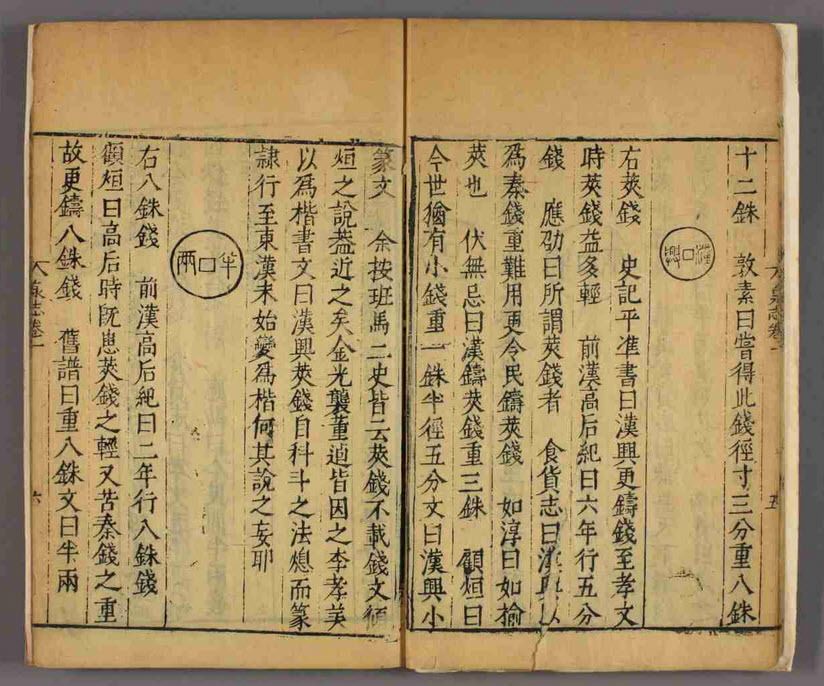 十二銖　敦素曰嘗得此錢徑寸三分重八銖
漢興
右莢錢　史記平准書曰漢興更鑄錢至孝文
時莢錢益多輕　前漢高后紀曰六年行五分
錢　應劭曰所謂莢錢者　食貨志曰漢興以
爲秦錢重難用更令民鑄莢錢　如淳曰如榆
莢也　伏無忌曰漢鑄莢錢重三銖　顧烜曰
今世猶有小錢重一銖半徑五分文曰漢興小
泉志卷一
五
篆文　余按班馬二史皆云莢錢不載錢文顧
烜之說葢近之矣金光襲董逌皆因之李孝美
以爲楷書文曰漢興莢錢自科斗之法熄而篆
隷行至東漢末始變爲楷何其說之妄耶
半兩
右八銖錢　前漢高后紀曰二年行八銖錢
顧烜曰高后時旣患莢錢之輕又苦秦錢之重
故更鑄八銖錢　舊譜曰重八銖文曰半兩
泉志卷一
六